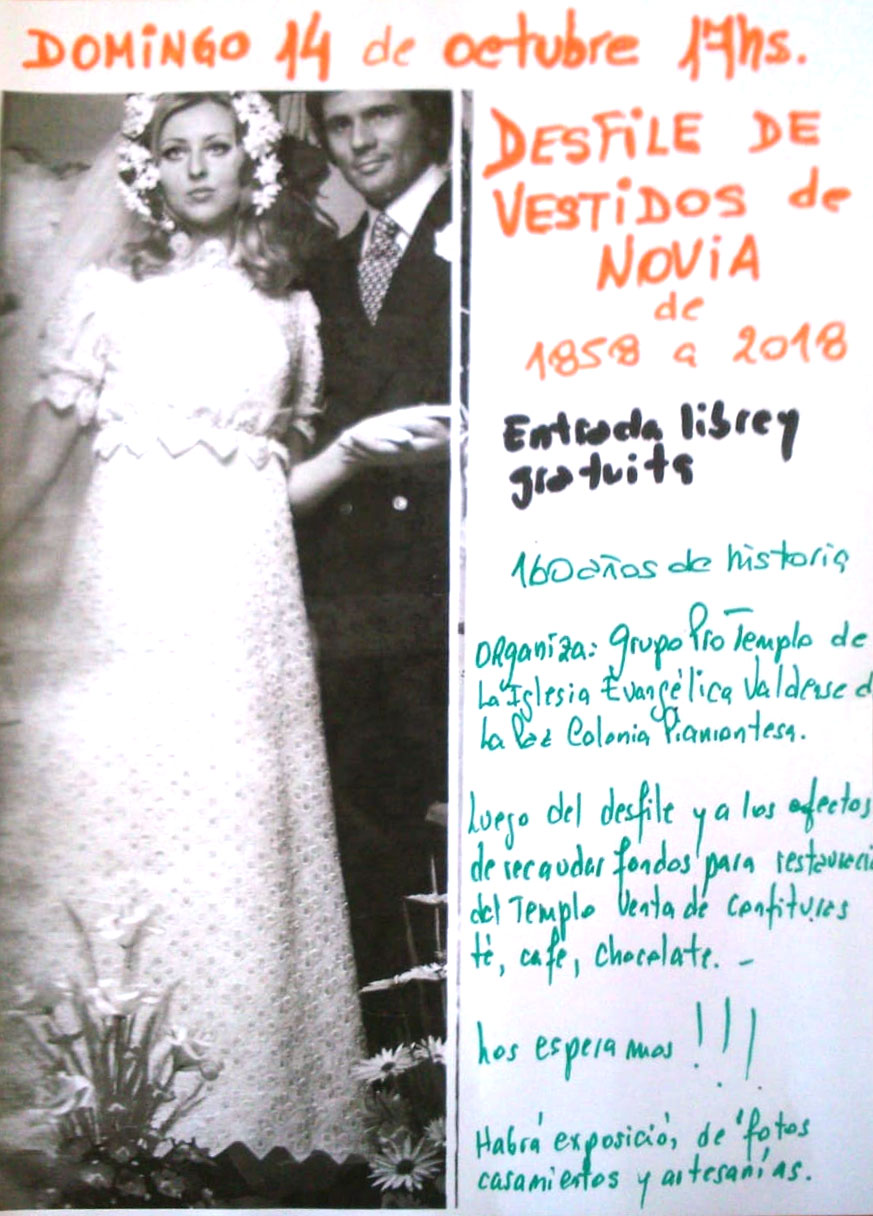 DOMINGO 14 de octubre 17hs.
DESFILE DE
VESTIDOS de
NOVIA
de
1858 a 2018
Entrada libre y
gratuita
160 años de historia
ORganiza: Grupo Pro Templo de
La Iglesia Evangélica Valdense d
La Paz Colonia Piamontesa.
Luego del desfile y a los efectos
de recaudar fondos para restauraci
del Templo Venta de Confituras
té, café, chocolate. -
Los esperamos !!!
Habrá exposición de fotos
casamientos y artesanías.